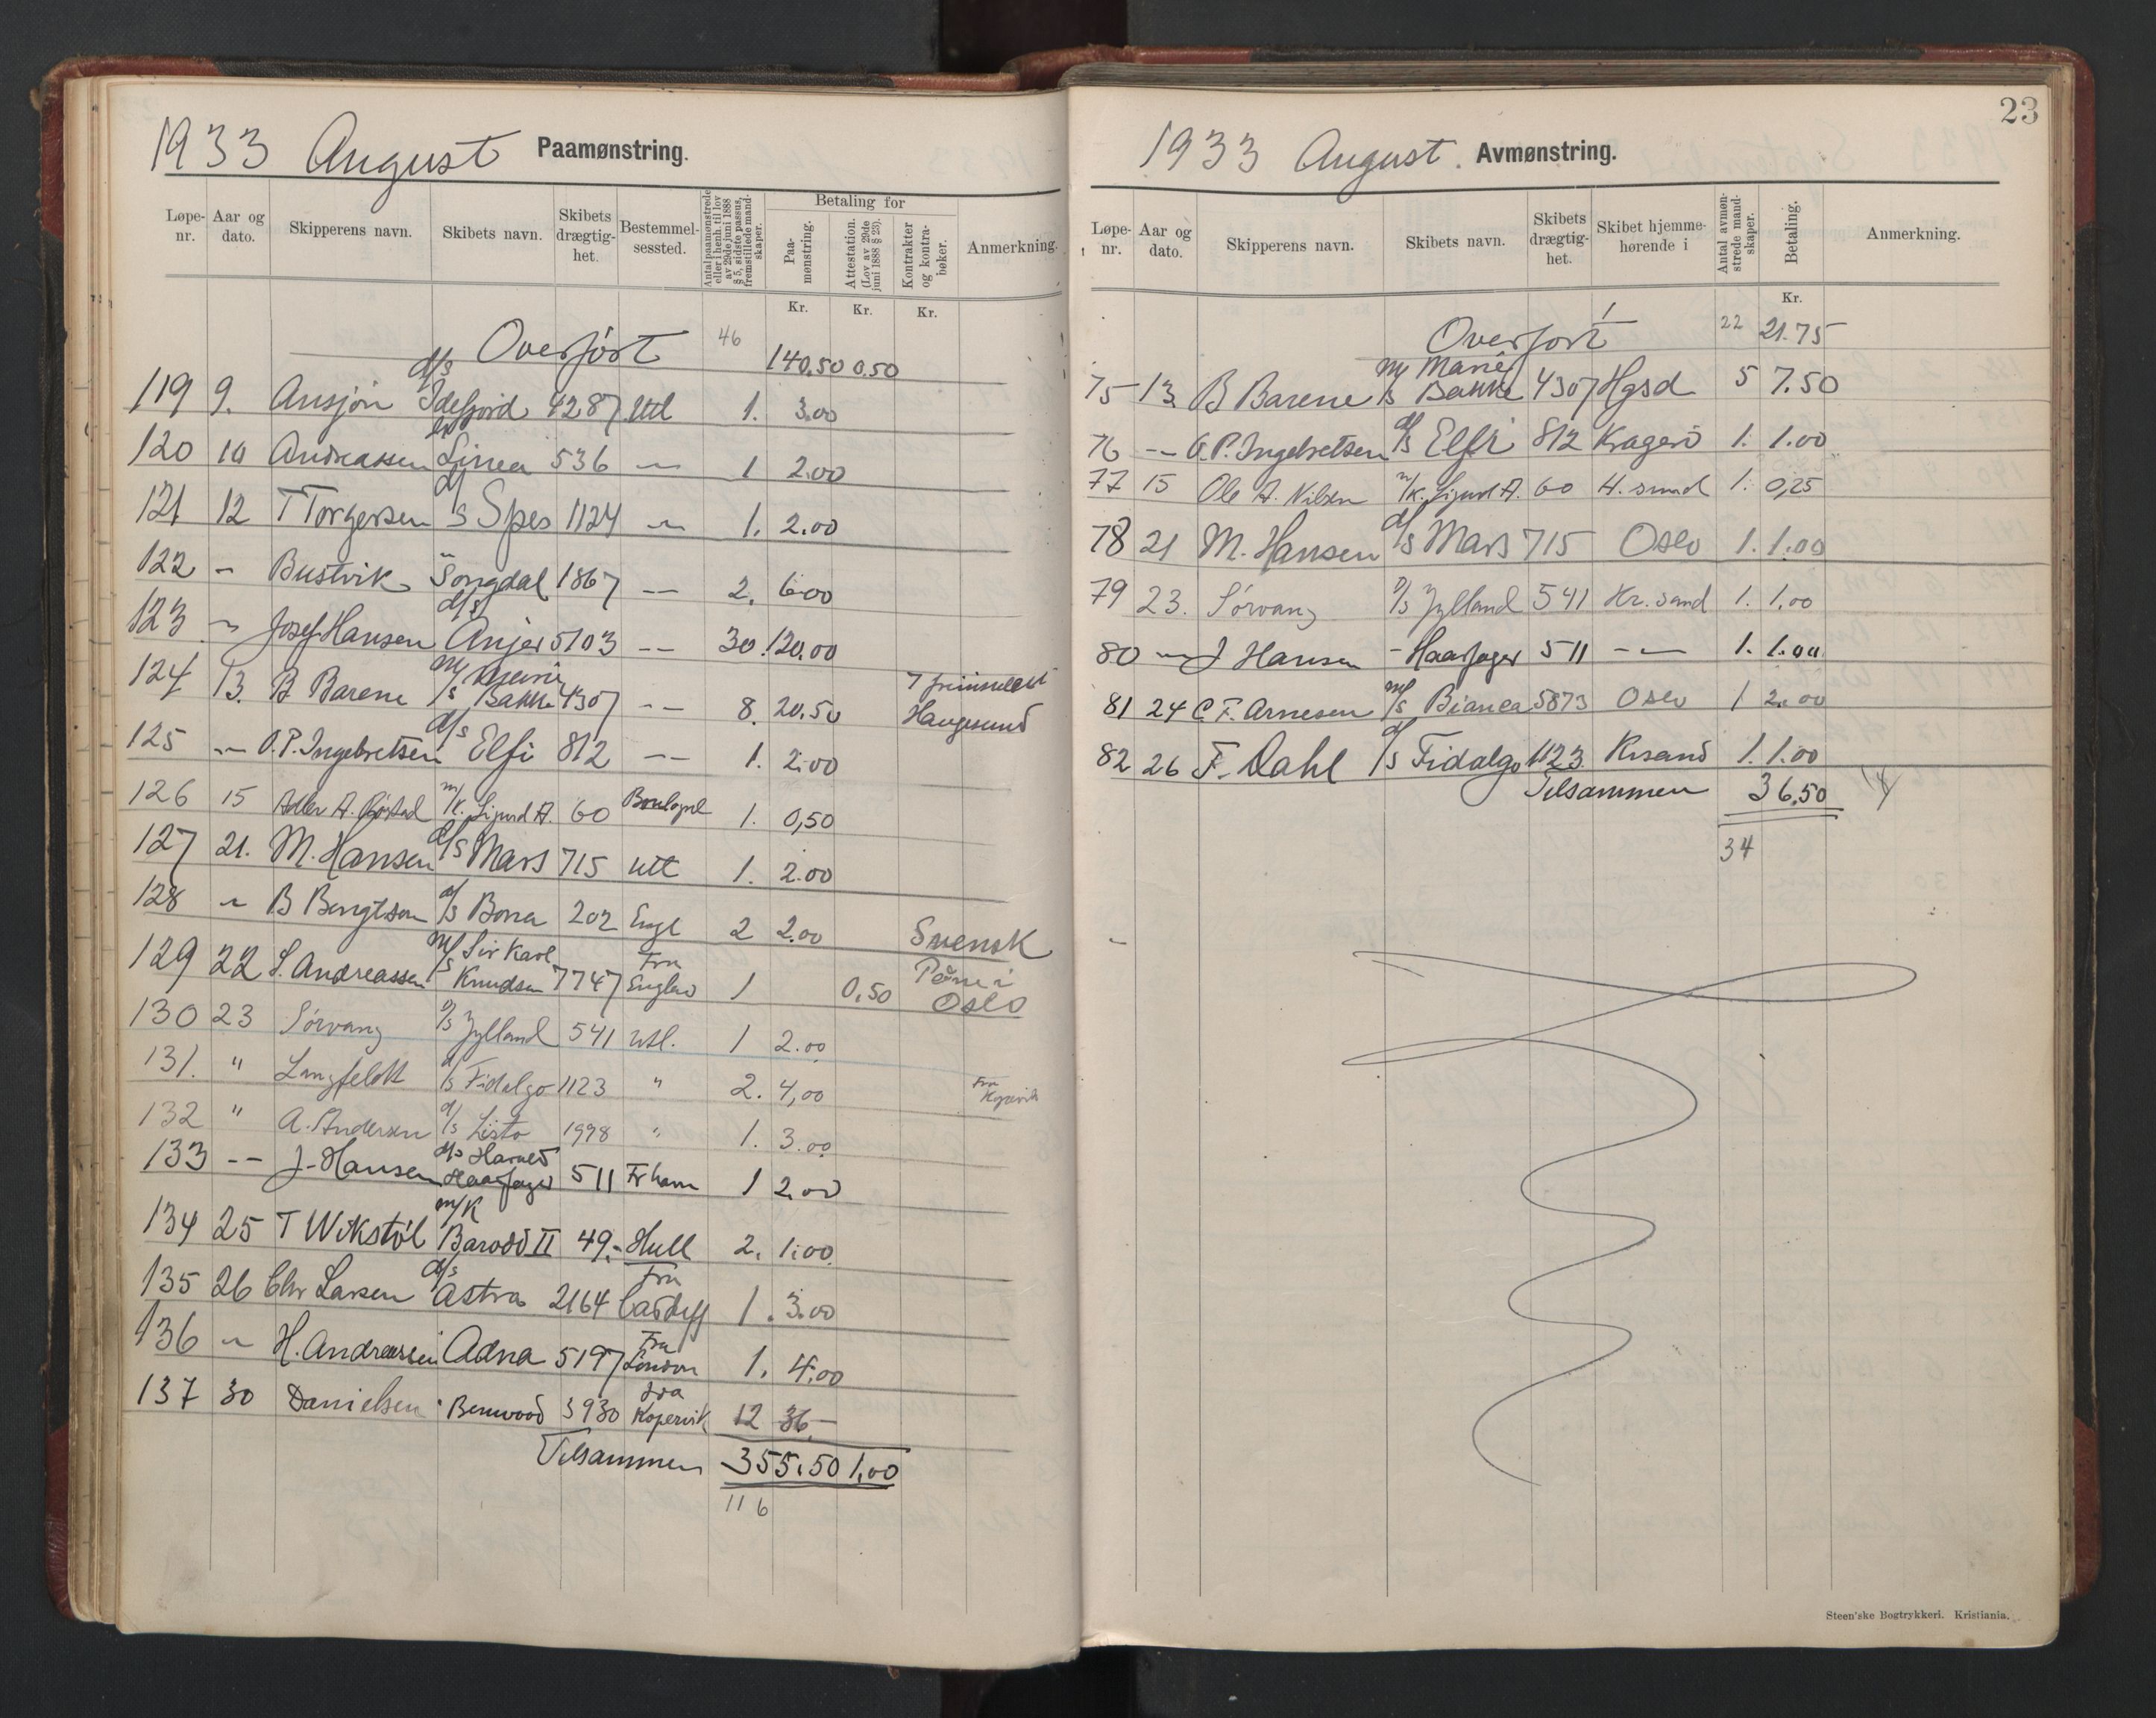 1933 August Paamønstring.
Løpe-nr. Aar og dato. Skipperens navn. Skibets navn. Skibets drægtig-het. Bestemmel-sessted. Antal paamønstrede eller i henh. til lov av 29de juni 1888 § 5, sidste passus, fremstillede mand-skaper. Betaling for Paa-mønstring. Attestation. (Lov av 29de juni 1888 § 23). Kontrakter og kontra-bøker. Anmerkning.
Kr. Kr. Kr.
Overført 46 140.50 0.50
119 9. Ansjön d/s Idefjord 4287 Utl 1. 3.00
120 10 Andreassen Linea 536 -"- 1 2.00
121 12 T Torgersen d/s Spes 1124 -"- 1. 2.00
122 -"- Bustvik " Songdal 1867 -"- 2. 6.00
123 -"- Josef Hansen d/s Anjer 5103 -"- 30. 120.00
124 13. B Barene m/s Marie Bakke 4307 -"- 8. 20.50 7 Haugesund
125 -"- O.P. Ingebretsen d/s Elfi 812 -"- 1. 2.00
126 15 A. m/k. Sigurd A. 60 Boulogne 1. 0,50
127 21. M. Hansen d/s Mars 715 Utl 1. 2.00
128 -"- B Bengtson d/s Bona 202 Engl 2 2.00 Svensk
129 22 S. Andreassen m/s Sir Karl Knudsen 7747 Fra England 1 0,50 Oslo
130 23 Sørvang d/s Jylland 541 Utl. 1 2.00
131. " Lingfeldt d/s Fidalgo 1123 " 2. 4,00 Fra Kopervik
132 " A. Andersen d/s Listo 1998 " 1. 3.00
133 -"- J. Hansen d/s Harald Haarfager 511 Fr havn 1 2.00
134 25 T Wikstøl m/k Barodd II 49.- Hull 2. 1.00
135 26 Chr Larsen d/s Astra 2164 Fra Cardiff 1. 3.00
136 -"- H. Andreassen Adna 5197 Fra London 1. 4.00
137 30 Danielsen " Benwood 3930 Fra Kopervik 12 36.-
Tilsammen 355.50 1.00
116
23
1933 August. Avmønstring.
Løpe-nr. Aar og dato. Skipperens navn. Skibets navn. Skibets drægtig-het. Skibet hjemme-hørende i Antal avmøn-strede mand-skaper. Betaling. Anmerkning.
Kr.
Overført 22 21.75
75 13. B Barene m/s Marie Bakke 4307 Hgsd 5 7.50
76 -"- O.P. Ingebretsen d/s Elfi 812 Kragerö 1. 1.00
77 15 Ole A. Nilsen m/k. Sigurd A. 60 H. sund 1. 0,25
78 21 M. Hansen d/s Mars 715 Oslo 1. 1.00
79 23. Sørvang d/s Jylland 541 Kr. sand 1. 1.00
80 -"- J Hansen - Haarfager 511 -"- 1. 1.00
81 24 C.F. Arnesen m/s Bianca 5873 Oslo 1 2.00
82 26 F. Dahl d/s Fidalgo 1123. Krsand 1. 1.00
Tilsammen 36.50
34
Steen'ske Bogtrykkeri. Kristiania.